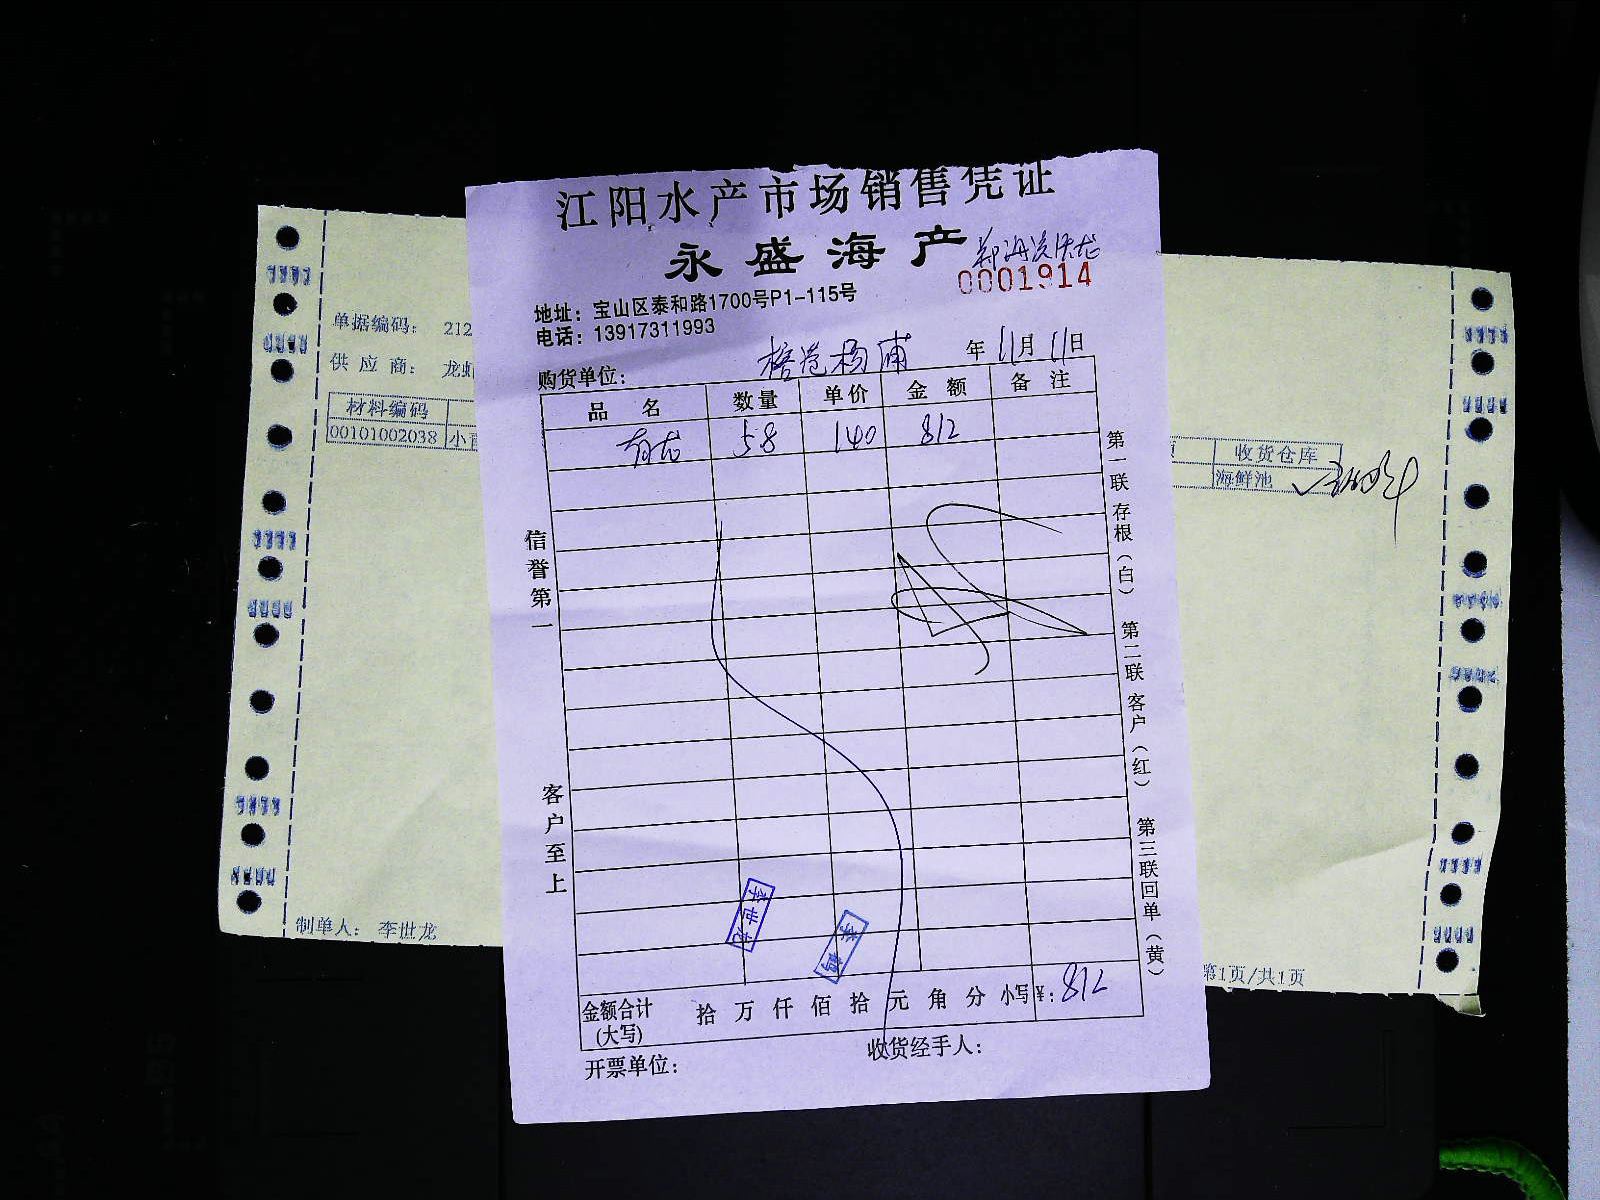 江阳水产市场销售凭证
永盛海产
0001914
地址：宝山区泰和路1700号P1-115号
电话：13917311993
购货单位：
年 11月 11日
品名 数量 单价 金额 备注
58 140 812
信誉第一
客户至上
第一联 存根（白） 第二联 客户（红） 第三联 回单（黄）
李世龙
金额合计（大写） 拾 万 仟 佰 拾 元 角 分 小写¥：812
开票单位：
收货经手人：
单据编码： 212
供应商： 龙虾
材料编码
00101002038 小青
收货仓库
海鲜池
制单人： 李世龙
第1页/共1页